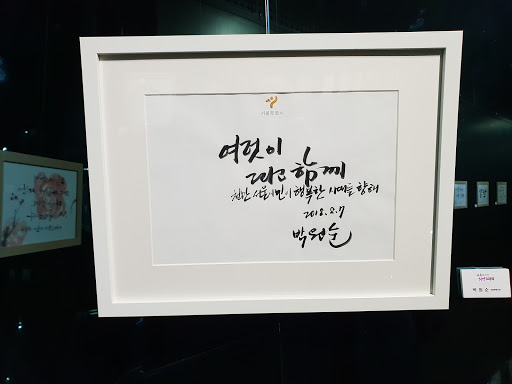 서울특별시
여럿이
함께
천만 서울시민이 행복한 시대를 향해
2018.
박원순
박원순